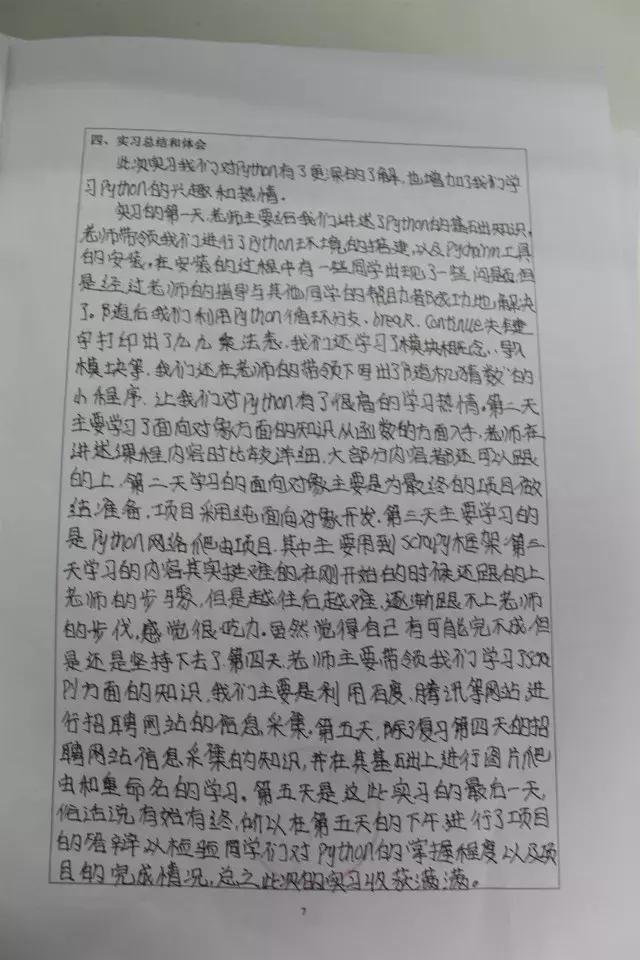 四、实习总结和体会
此次实习我们对Python有了更深的了解,也增加了我们学
习Python的兴趣和热情。
实习的第一天,老师主要给我们讲述了Python的基础知识,
老师带领我们进行了Python环境的搭建,以及Pycharm工具
的安装,在安装的过程中有一些同学出现了一些问题,但
是经过老师的指导与其他同学的帮助都成功地解决
了。随后我们利用Python循环分支、break、Continue关键
字打印出了九九乘法表,我们还学习了模块概念、导入
模块等,我们还在老师的带领下写出了"随机猜数"的
小程序,让我们对Python有了很高的学习热情。第二天
主要学习了面向对像方面的知识从函数的方面入手,老师在
讲述课程内容时比较详细,大部分内容都还可以跟
的上,第二天学习的面向对象主要是为最终的项目做
结准备,项目采用纯面向对象开发,第三天主要学习的
是Python网络爬虫项目,其中主要用到scrapy框架,第三
天学习的内容其实挺难的,在刚开始的时候还跟的上
老师的步骤,但是越往后越难,逐渐跟不上老师
的步伐,感觉很吃力。虽然觉得自己有可能完不成,但
是还是坚持下去了,第四天老师主要带领我们学习了scra
py方面的知识,我们主要是利用百度、腾讯等网站,进
行招聘网站的信息采集,第五天,除了复习第四天的招
聘网站信息采集的知识,并在其基础上进行图片爬
虫和重命名的学习。第五天是这此实习的最后一天,
俗话说有始有终,所以在第五天的下午进行了项目
的答辩以检验同学们对Python的掌握程度以及项
目的完成情况,总之此次的实习收获满满。
7